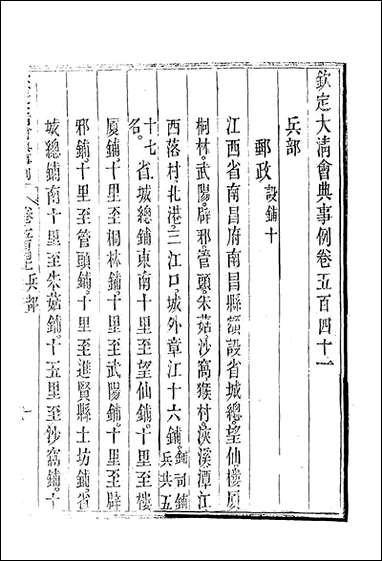 欽定大清會典事例卷五百四十一
兵部
郵政設鋪十
江西省南昌府南昌縣額設省城總望仙樓厦
桐林武陽辟邪管頭朱菇沙窩猴村浹溪潭江
西落村北港三江口城外章江十六鋪鋪司鋪兵共五
十七名省城總鋪東南十里至望仙鋪十里至樓
厦鋪十里至桐林鋪十里至武陽鋪十里至辟
邪鋪十里至管頭鋪十里至進賢縣土坊鋪省
城總鋪南十里至朱菇鋪十五里至沙窩鋪十
兵部